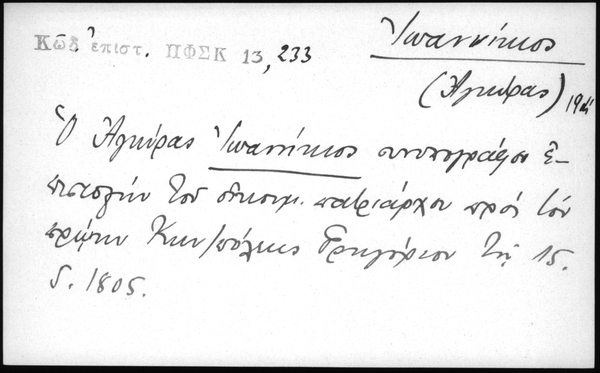 Κῶδ. ἐπιστ. ΠΦΣΚ 13, 233
Ἰωαννίκιος
(Ἀγκύρας)
Ὁ Ἀγκύρας Ἰωαννίκιος συνυπογράφει ἐ-
πιστολὴν τοῦ οἰκουμ. πατριάρχου πρὸς τὸν
πρώην Κων/πόλεως Γρηγόριον τῇ 15.
5. 1805.